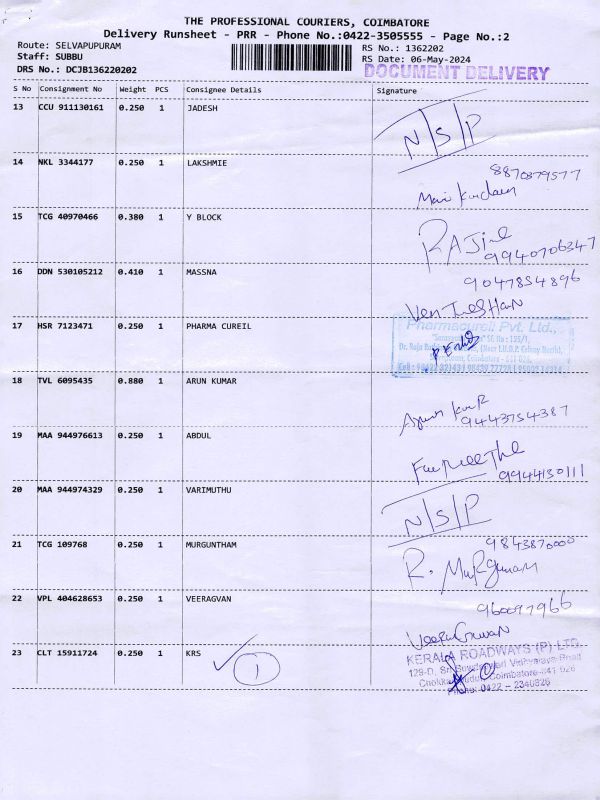 THE PROFESSIONAL COURIERS, COIMBATORE
Delivery Runsheet - PRR - Phone No.:0422-3505555 - Page No.:2
Route: SELVAPUPURAM
RS No.: 1362202
Staff: SUBBU
RS Date: 06-May-2024
DRS No.: DCJB136220202
DOCUMENT DELIVERY
S No Consignment No Weight PCS Consignee Details Signature
13 CCU 911130161 0.250 1 JADESH
N/S/P
14 NKL 3344177 0.250 1 LAKSHMIE
8870879577
15 TCG 40970466 0.380 1 Y BLOCK
9940706347
16 DDN 530105212 0.410 1 MASSNA
9047854896
17 HSR 7123471 0.250 1 PHARMA CUREIL
Pharmacureil Pvt. Ltd.,
18 TVL 6095435 0.880 1 ARUN KUMAR
9443754387
19 MAA 944976613 0.250 1 ABDUL
9944130111
20 MAA 944974329 0.250 1 VARIMUTHU
N/S/P
21 TCG 109768 0.250 1 MURGUNTHAM
9843870000
R. Murgunam
22 VPL 404628653 0.250 1 VEERAGVAN
960097966
23 CLT 15911724 0.250 1 KRS
1
KERALA ROADWAYS (P) LTD.
Coimbatore-641 026
Phone: 0422 - 2346826